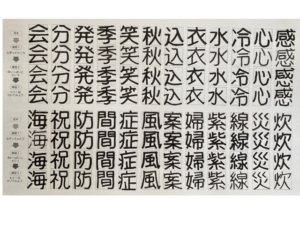 会分発季笑秋込衣水冷心感
会分発季笑秋込衣水冷心感
会分発季笑秋込衣水冷心感
会分発季笑秋込衣水冷心感
海祝防間症風案婦紫線災炊
海祝防間症風案婦紫線災炊
海祝防間症風案婦紫線災炊
海祝防間症風案婦紫線災炊